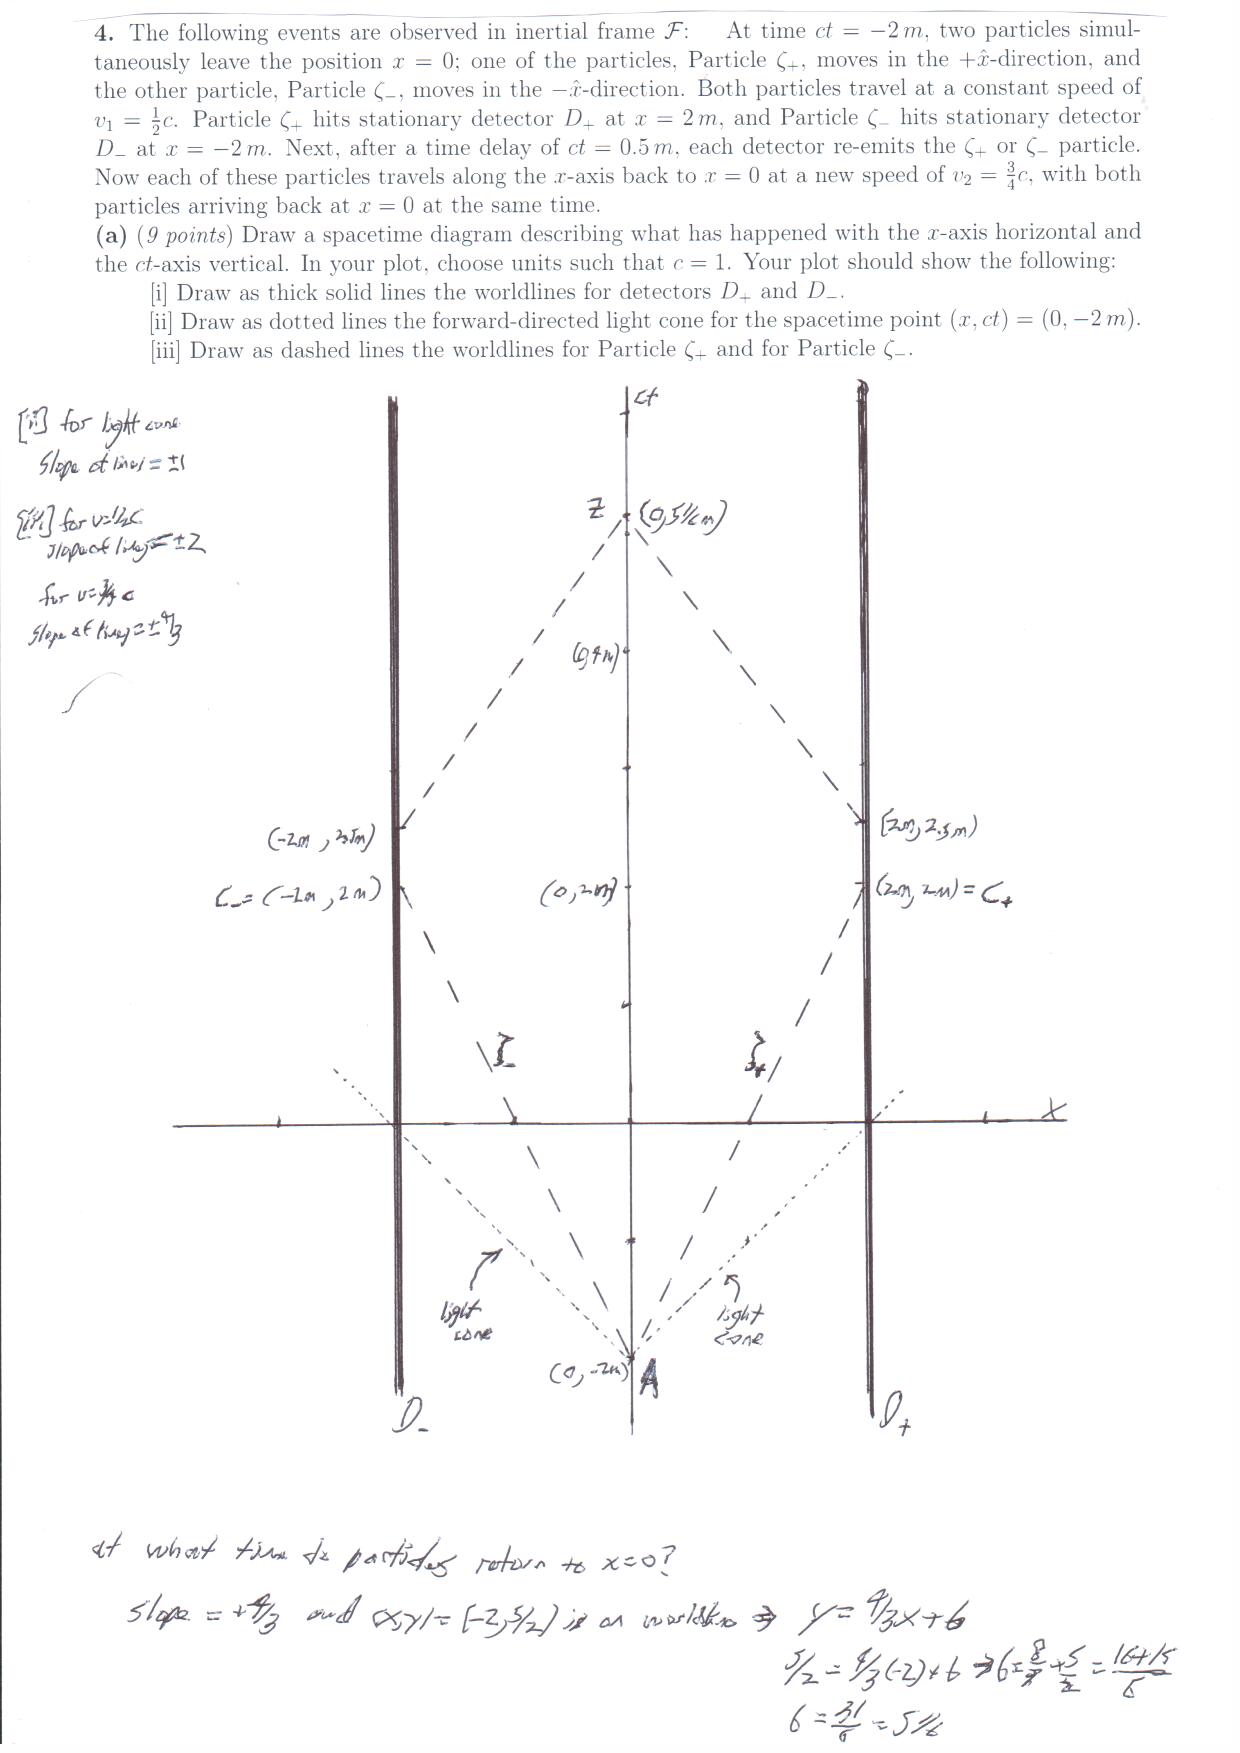 4. The following events are observed in inertial frame F: At time ct = −2 m, two particles simul-
taneously leave the position x = 0; one of the particles, Particle ζ₊, moves in the +x̂-direction, and
the other particle, Particle ζ₋, moves in the −x̂-direction. Both particles travel at a constant speed of
v₁ = ½c. Particle ζ₊ hits stationary detector D₊ at x = 2 m, and Particle ζ₋ hits stationary detector
D₋ at x = −2 m. Next, after a time delay of ct = 0.5 m, each detector re-emits the ζ₊ or ζ₋ particle.
Now each of these particles travels along the x-axis back to x = 0 at a new speed of v₂ = ¾c, with both
particles arriving back at x = 0 at the same time.
(a) (9 points) Draw a spacetime diagram describing what has happened with the x-axis horizontal and
the ct-axis vertical. In your plot, choose units such that c = 1. Your plot should show the following:
[i] Draw as thick solid lines the worldlines for detectors D₊ and D₋.
[ii] Draw as dotted lines the forward-directed light cone for the spacetime point (x, ct) = (0, −2 m).
[iii] Draw as dashed lines the worldlines for Particle ζ₊ and for Particle ζ₋.
ct
[ii] for light cone
slope of lines = ±1
[iii] for v=1/2c
slope of lines = ±2
for v=3/4 c
slope of lines = ±4/3
Z (0,5 1/6 m)
(0,4m)
(-2m, 2.5m)
(2m, 2.5m)
C₋ = (-2m, 2m)
(0, 2m)
(2m, 2m) = C₊
ζ₋
ζ₊
x
light
cone
light
cone
(0, -2m) A
D₋
D₊
at what time do particles return to x=0?
slope = +4/3 and (x,y) = (-2,5/2) is on worldline ⇒ y = 4/3x+b
5/2 = 4/3(-2)+b ⇒ b = 8/3 + 5/2 = 16+15/6
b = 31/6 = 5 1/6